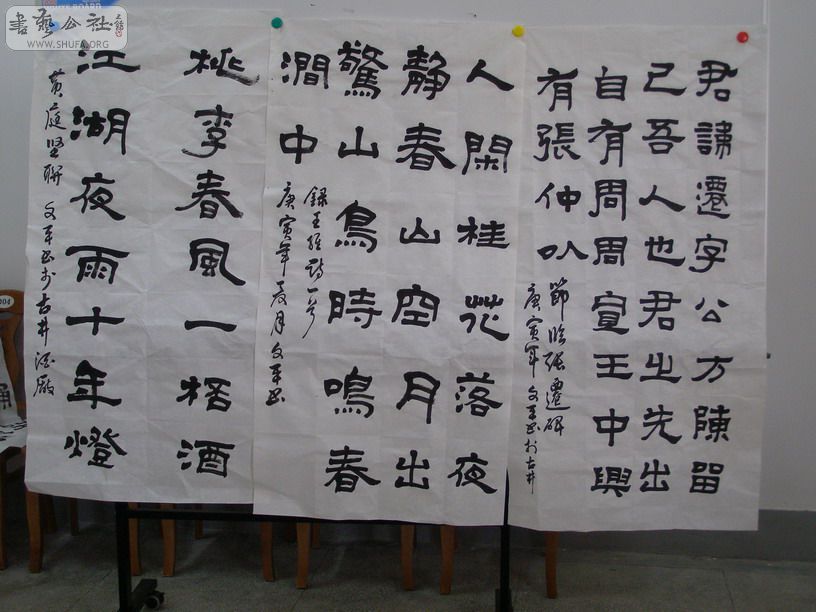 君諱遷字公方陳留
己吾人也君之先出
自有周周宣王中興
有張仲以
節临張遷碑
庚寅年文军书於古井
人閑桂花落夜
靜春山空月出
驚山鳥時鳴春
澗中
録王維詩一首
庚寅年夏月文军书
桃李春風一桮酒
江湖夜雨十年燈
黄庭坚聨文军书於古井酒廠
書藝公社
WWW.SHUFA.ORG
BOARD
004